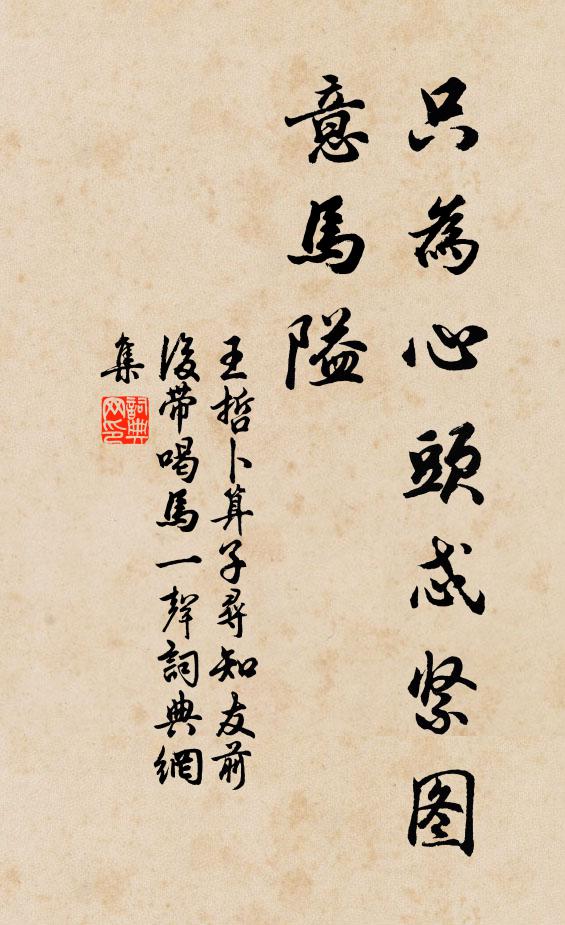 只為心頭忒紧图
意馬隘
王哲卜算子尋知友前
後帶喝馬一聲詞典網
集
詞典
网印